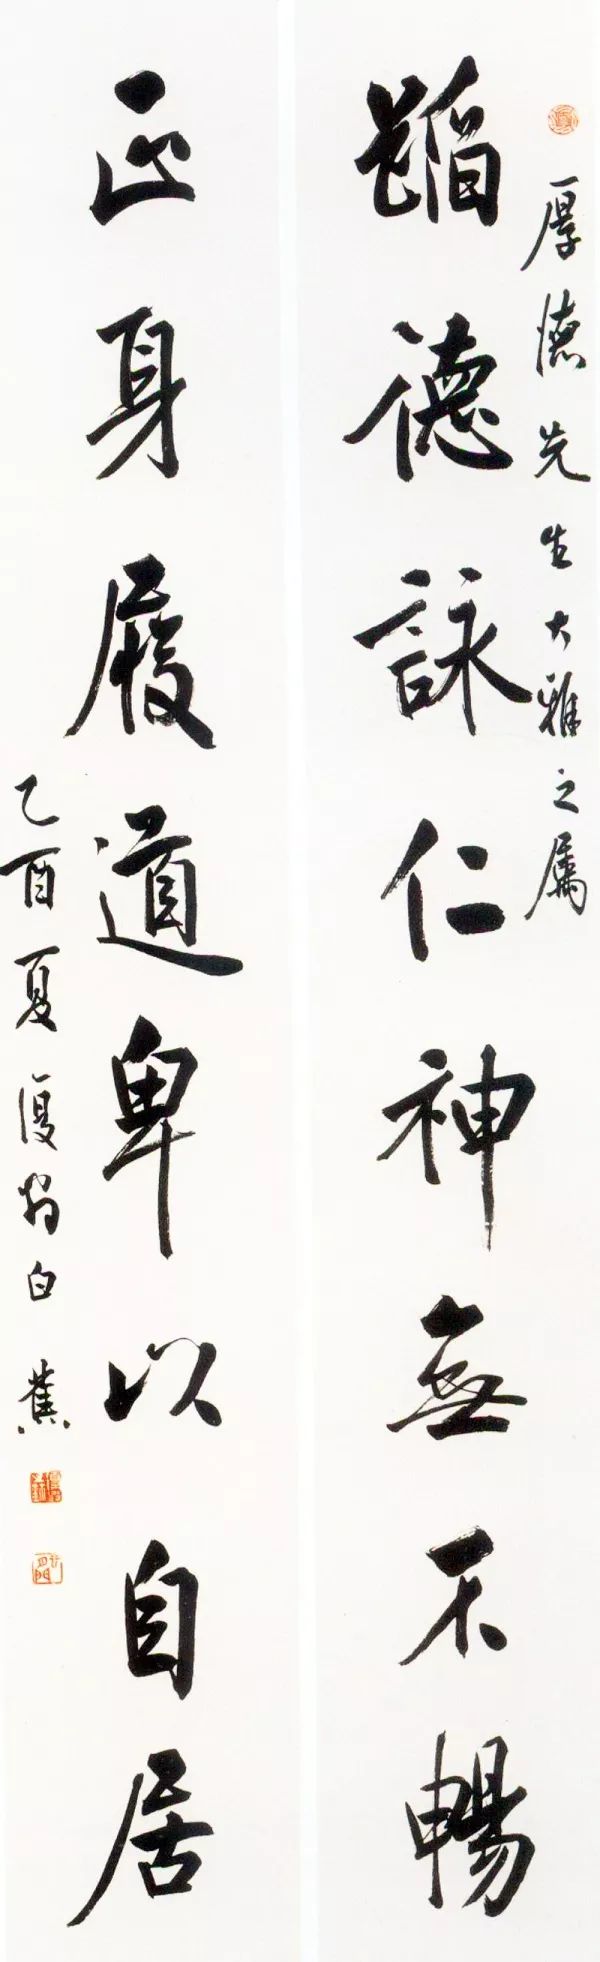 厚德先生大雅之屬
蹈德詠仁神無不暢
正身履道卑以自居
乙酉夏復翁白蕉